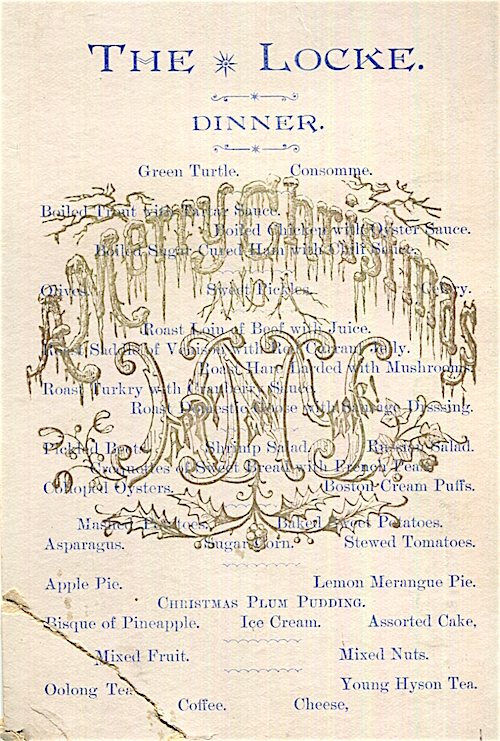 THE LOCKE.
DINNER.
Green Turtle. Consomme.
Boiled Trout with Tartar Sauce.
Boiled Chicken with Oyster Sauce.
Boiled Sugar Cured Ham with Chili Sauce.
Olives. Sweet Pickles. Celery.
Roast Loin of Beef with Juice.
Roast Saddle of Venison with Red Currant Jelly.
Roast Ham Larded with Mushrooms.
Roast Turkry with Cranberry Sauce.
Roast Domestic Goose with Sausage Disssing.
Pickled Beets. Shrimp Salad. Russian Salad.
Croquettes of Sweet Bread with French Peas.
Colloped Oysters. Boston Cream Puffs.
Mashed Potatoes. Baked Sweet Potatoes.
Asparagus. Sugar Corn. Stewed Tomatoes.
Apple Pie. Lemon Merangue Pie.
CHRISTMAS PLUM PUDDING.
Bisque of Pineapple. Ice Cream. Assorted Cake,
Mixed Fruit. Mixed Nuts.
Oolong Tea. Young Hyson Tea.
Coffee. Cheese,
A Merry Christmas
AND
HAPPY NEW YEAR!